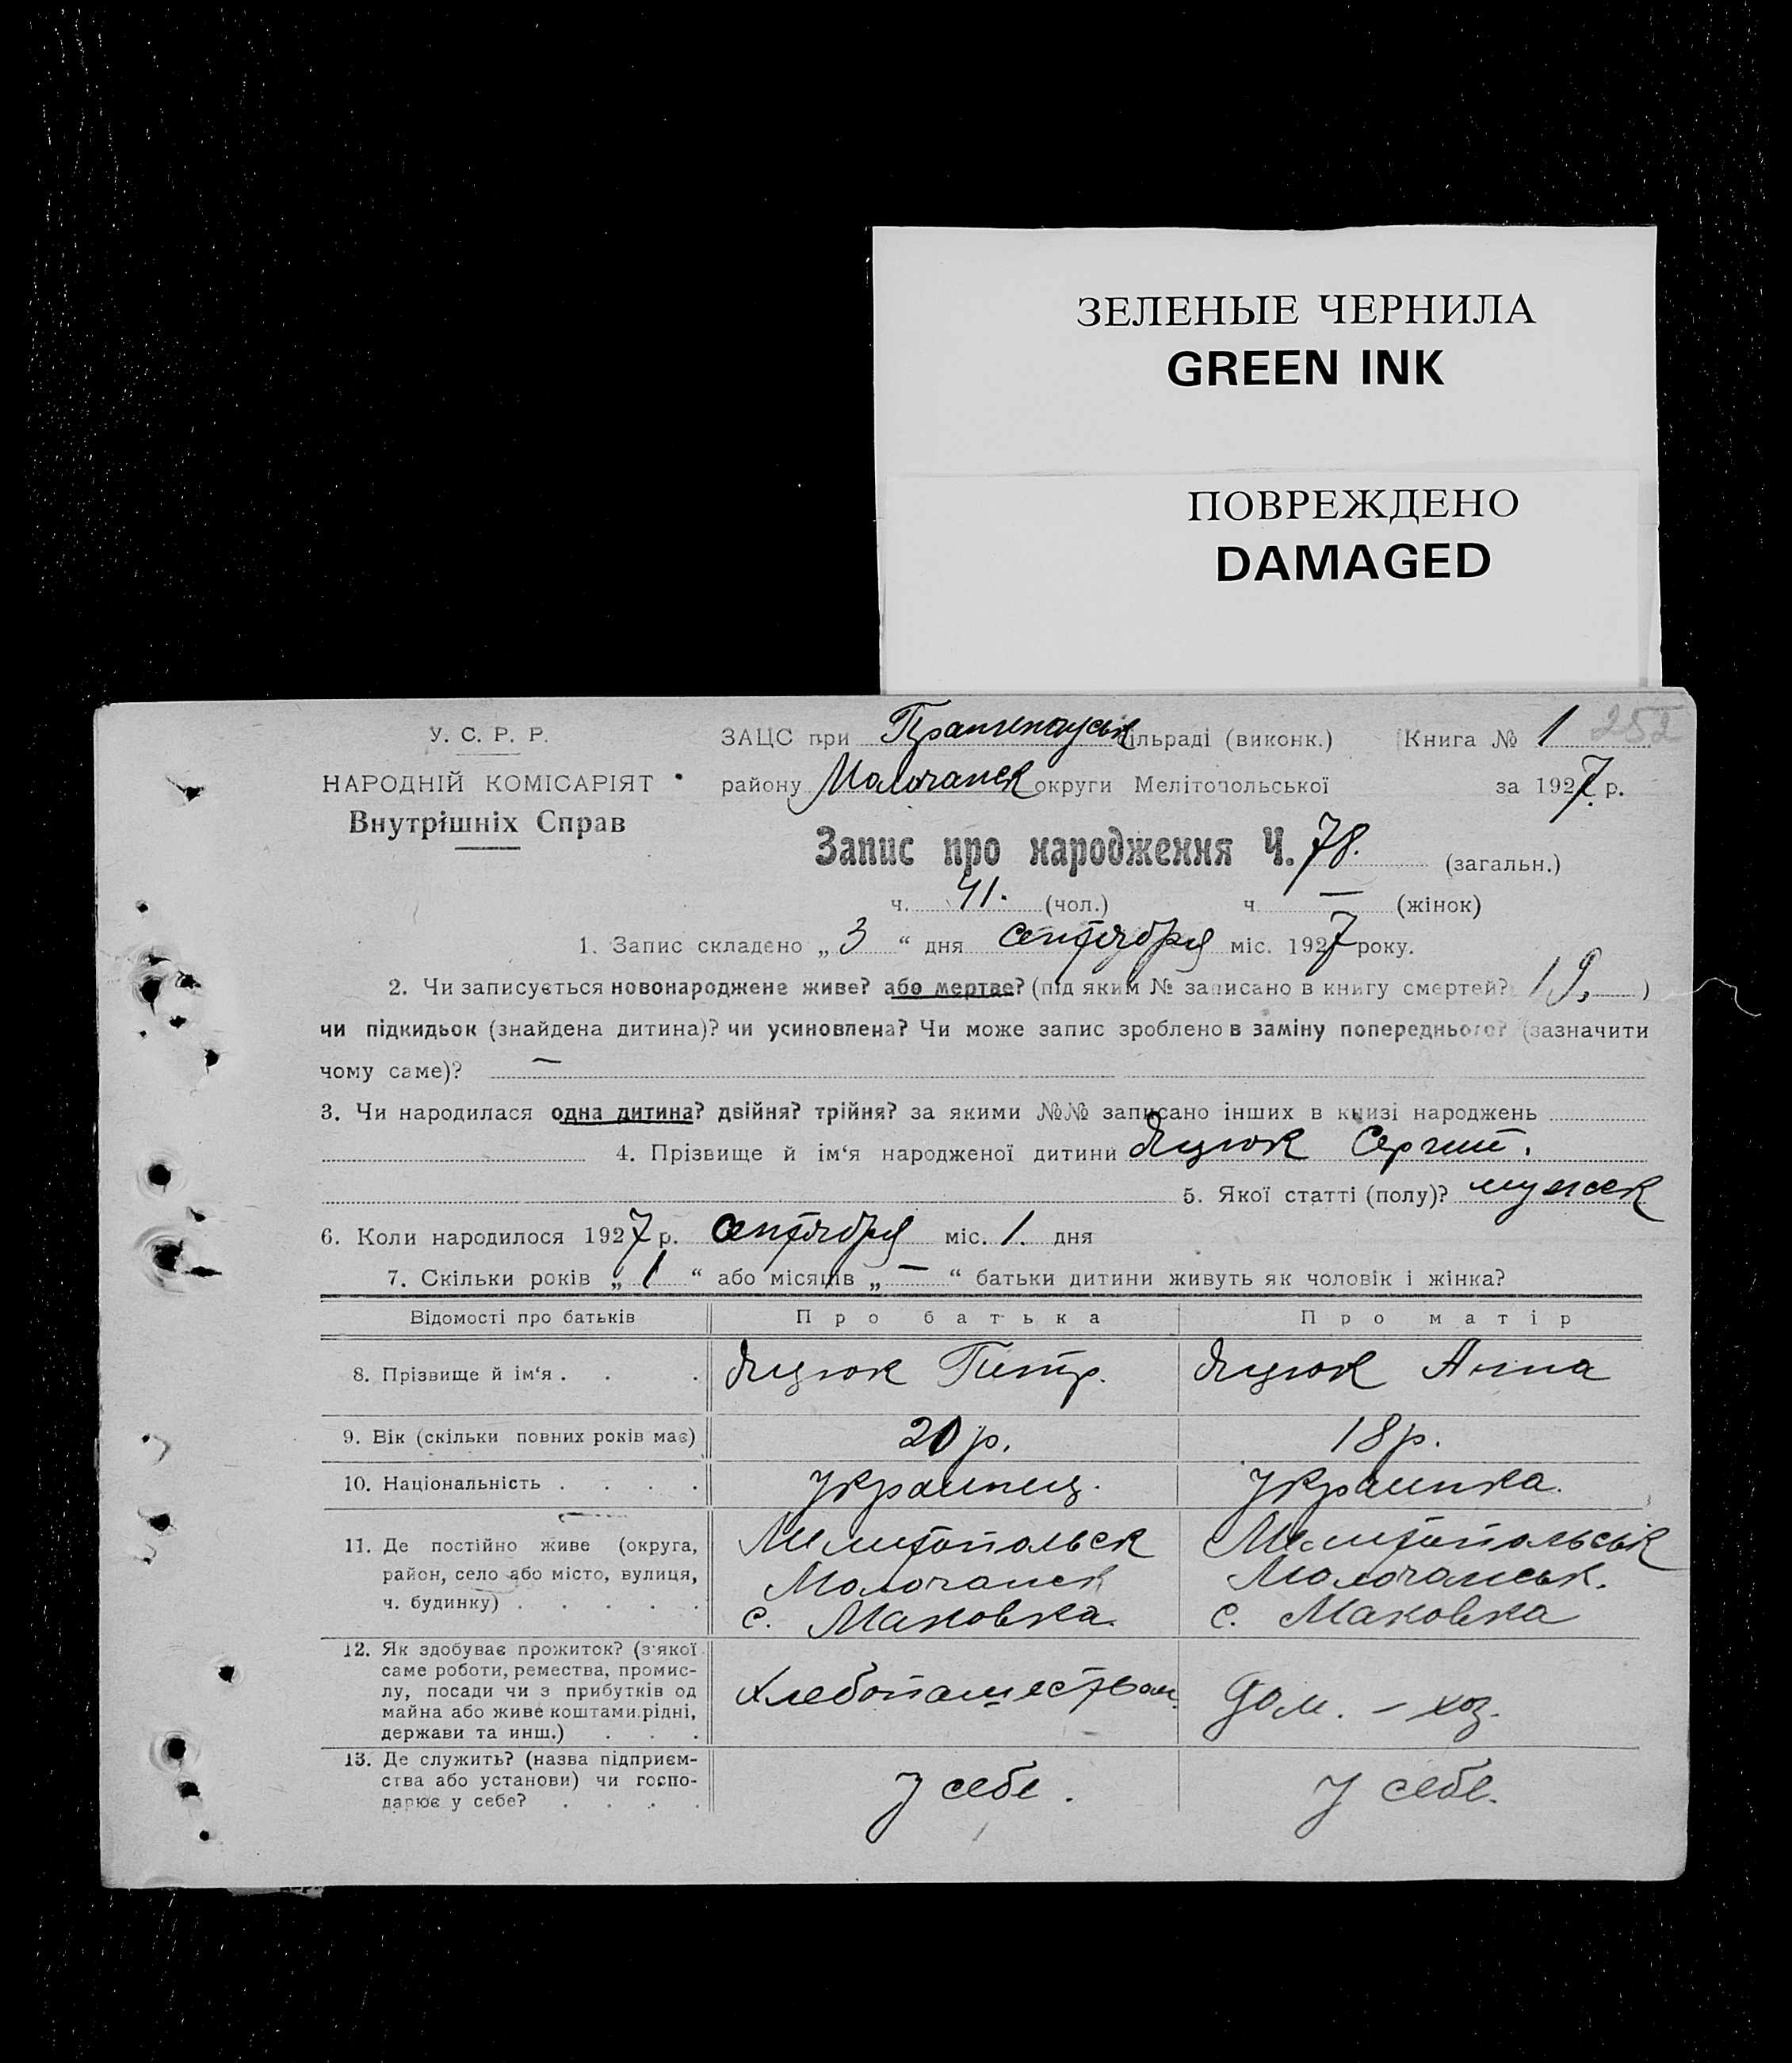 ЗЕЛЕНЫЕ ЧЕРНИЛА
GREEN INK
ПОВРЕЖДЕНО
DAMAGED
У. С. Р. Р.
НАРОДНІЙ КОМІСАРІЯТ
Внутрішніх Справ
ЗАЦС при сільраді (виконк.) Книга № 1 252
району Молочанск округи Мелітопольської за 1927 р.
Запис про народження Ч. 78. (загальн.)
ч. 41. (чол.) ч. — (жінок)
1. Запис складено „ 3 “ дня сентября міс. 1927 року.
2. Чи записується новонароджене живе? або мертве? (під яким № записано в книгу смертей? 19. )
чи підкидьок (знайдена дитина)? чи усиновлена? Чи може запис зроблено в заміну попереднього? (зазначити
чому саме)? —
3. Чи народилася одна дитина? двійня? трійня? за якими №№ записано інших в книзі народжень
4. Прізвище й ім‘я народженої дитини Яцюк Сергий.
5. Якої статті (полу)? мужск
6. Коли народилося 1927 р. сентября міс. 1. дня
7. Скільки років „ 1 “ або місяців „ — “ батьки дитини живуть як чоловік і жінка?
Відомості про батьків Про батька Про матір
8. Прізвище й ім‘я . . . Яцюк Петр. Яцюк Анна
9. Вік (скільки повних років має) 20 р. 18 р.
10. Національність . . . . Украинец. Украинка.
11. Де постійно живе (округа, район, село або місто, вулиця, ч. будинку) . . . . .
Мелитопольск Мелитопольськ
Молочанск Молочанськ.
с. Маковка. с. Маковка
12. Як здобуває прожиток? (з‘якої
саме роботи, ремества, промис-
лу, посади чи з прибутків од
майна або живе коштами рідні,
держави та инш.) . . .
Хлебопашеством Дом. – хоз.
13. Де служить? (назва підприєм-
ства або установи) чи госпо-
дарює у себе? . . . .
У себе. У себе.